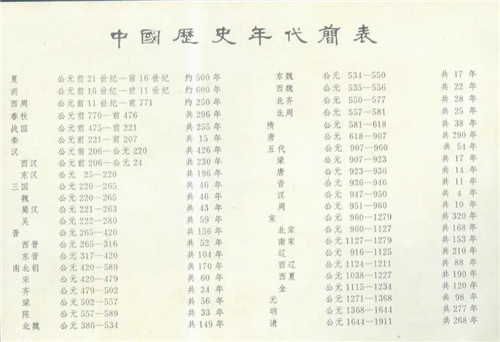 中國歷史年代簡表
夏 公元前21世纪—前16世纪 约500年
商 公元前16世纪—前11世纪 约600年
西周 公元前11世纪—前771 约250年
春秋 公元前770—前476 共296年
战国 公元前475—前221 共255年
秦 公元前221—前207 共15年
汉 公元前206—公元220 共426年
西汉 公元前206—公元24 共230年
东汉 公元 25—220 共196年
三国 公元220—265 共46年
魏 公元220—265 共46年
蜀汉 公元221—263 共43年
吴 公元222—280 共59年
晋 公元265—420 共156年
西晋 公元265—316 共52年
东晋 公元317—420 共104年
南北朝 公元420—589 共170年
宋 公元420—479 共60年
齐 公元479—502 共24年
梁 公元502—557 共56年
陈 公元557—589 共33年
北魏 公元386—534 共149年
东魏 公元 534—550 共17年
西魏 公元 535—556 共22年
北齐 公元 550—577 共28年
北周 公元 557—581 共25年
隋 公元 581—618 共38年
唐 公元 618—907 共290年
五代 公元 907—960 共54年
梁 公元 907—923 共17年
唐 公元 923—936 共14年
晋 公元 936—946 共11年
汉 公元 947—950 共4年
周 公元 951—960 共10年
宋 公元 960—1279 共320年
北宋 公元 960—1127 共168年
南宋 公元 1127—1279 共153年
辽 公元 916—1125 共210年
西辽 公元 1124—1211 共88年
西夏 公元 1038—1227 共190年
金 公元 1115—1234 共120年
元 公元 1271—1368 共98年
明 公元 1368—1644 共277年
清 公元 1644—1911 共268年